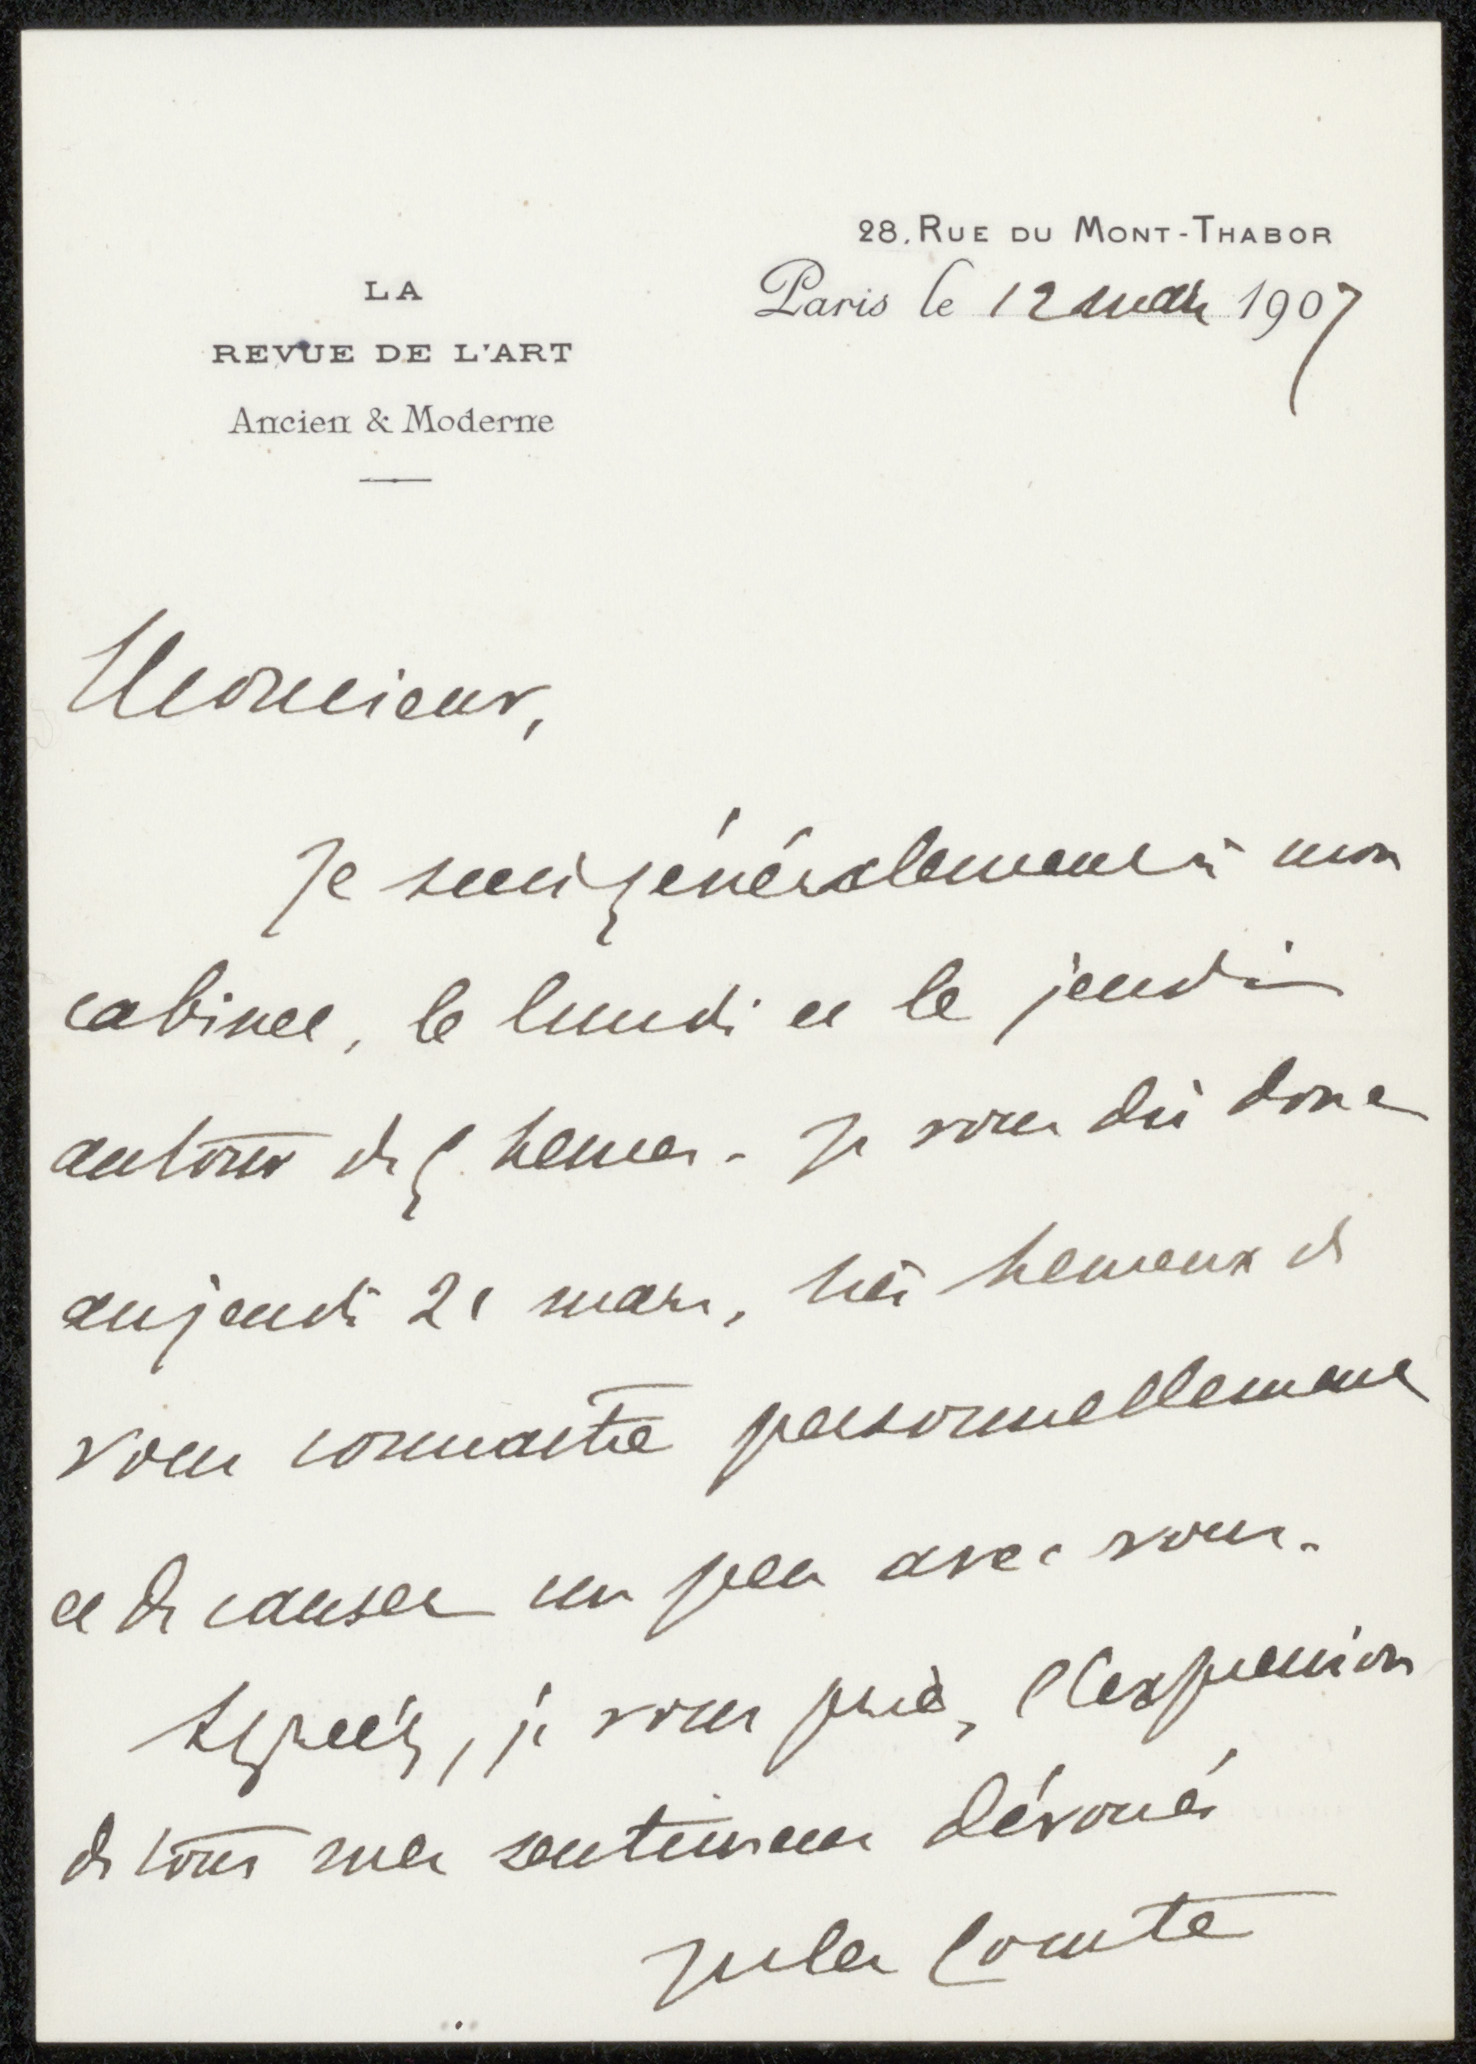 28, RUE DU MONT-THABOR
Paris le 12 mars 1907
LA
REVUE DE L'ART
Ancien & Moderne
Monsieur,
Je suis généralement à mon
cabinet, le lundi et le jeudi
autour de 5 heures. Je vous dis donc
au jeudi 21 mars, très heureux de
vous connaître personnellement
et de causer un peu avec vous.
Agréez, je vous prie, l'expression
de tous mes sentiments dévoués
Jules Comte